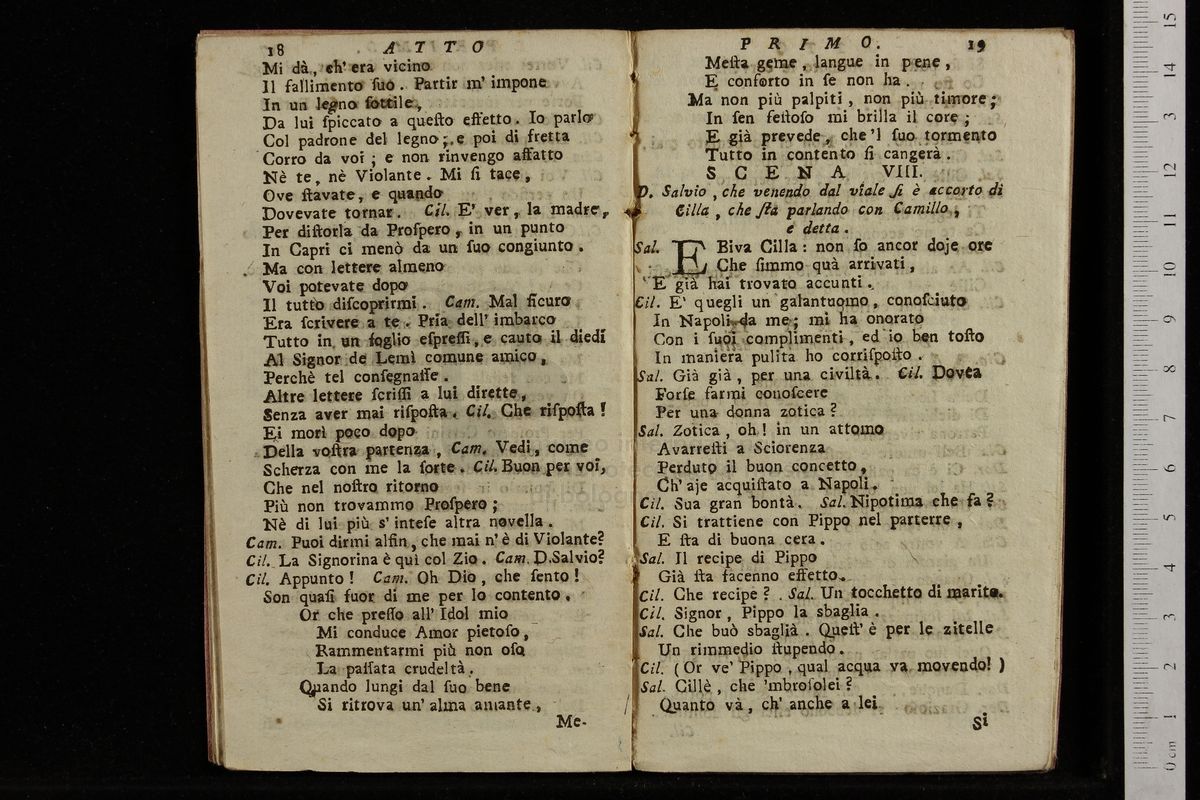 18 ATTO
Mi dà, ch' era vicino
Il fallimento ſuo. Partir m' impone
In un legno ſottile,
Da lui ſpiccato a queſto effetto. Io parlo
Col padrone del legno; e poi di fretta
Corro da voi; e non rinvengo affatto
Nè te, nè Violante. Mi ſi tace,
Ove ſtavate, e quando
Dovevate tornar. Cil. E' ver, la madre,
Per diſtorla da Proſpero, in un punto
In Capri ci menò da un ſuo congiunto.
Ma con lettere almeno
Voi potevate dopo
Il tutto diſcoprirmi. Cam. Mal ſicuro
Era ſcrivere a te. Pria dell' imbarco
Tutto in un foglio eſpreſſi, e cauto il diedi
Al Signor de Lemì comune amico,
Perchè tel conſegnaſſe.
Altre lettere ſcriſſi a lui dirette,
Senza aver mai riſpoſta. Cil. Che riſpoſta!
Ei morì poco dopo
Della voſtra partenza, Cam. Vedi, come
Scherza con me la ſorte. Cil. Buon per voi,
Che nel noſtro ritorno
Più non trovammo Proſpero;
Nè di lui più s' inteſe altra novella.
Cam. Puoi dirmi alfin, che mai n' è di Violante?
Cil. La Signorina è quì col Zio. Cam. D. Salvio?
Cil. Appunto! Cam. Oh Dio, che ſento!
Son quaſi fuor di me per lo contento.
Or che preſſo all' Idol mio
Mi conduce Amor pietoſo,
Rammentarmi più non oſo
La paſſata crudeltà.
Quando lungi dal ſuo bene
Si ritrova un' alma amante,
Me-
PRIMO. 19
Meſta geme, langue in pene,
E conforto in ſe non ha.
Ma non più palpiti, non più timore;
In ſen feſtoſo mi brilla il core;
E già prevede, che 'l ſuo tormento
Tutto in contento ſi cangerà.
SCENA VIII.
D. Salvio, che venendo dal viale ſi è accorto di
Cilla, che ſta parlando con Camillo,
e detta.
Sal. EBiva Cilla: non ſo ancor doje ore
Che ſimmo quà arrivati,
E già hai trovato accunti.
Cil. E' quegli un galantuomo, conoſciuto
In Napoli da me; mi ha onorato
Con i ſuoi complimenti, ed io ben toſto
In maniera pulita ho corriſpoſto.
Sal. Già già, per una civiltà. Cil. Dovea
Forſe farmi conoſcere
Per una donna zotica?
Sal. Zotica, oh! in un attomo
Avarreſti a Sciorenza
Perduto il buon concetto,
Ch' aje acquiſtato a Napoli.
Cil. Sua gran bontà. Sal. Nipotima che fa?
Cil. Si trattiene con Pippo nel parterre,
E ſta di buona cera.
Sal. Il recipe di Pippo
Già ſta facenno effetto.
Cil. Che recipe? Sal. Un tocchetto di marito.
Cil. Signor, Pippo la sbaglia.
Sal. Che buò sbaglià. Queſt' è per le zitelle
Un rimmedio ſtupendo.
Cil. (Or ve' Pippo, qual acqua va movendo!)
Sal. Cillè, che 'mbroſolei?
Quanto và, ch' anche a lei
Si